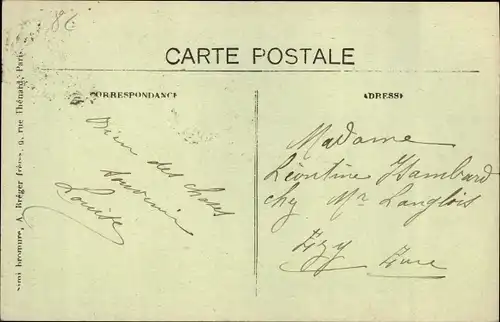 8€
CARTE POSTALE
CORRESPONDANCE
ADRESSE
Bien des choses
Souvenir
Louise
Madame
Léontine Isambard
chy Mr Langlois
Ezy Eure
simi bromure, A. Bréger frères, 9, rue Thénard, Paris